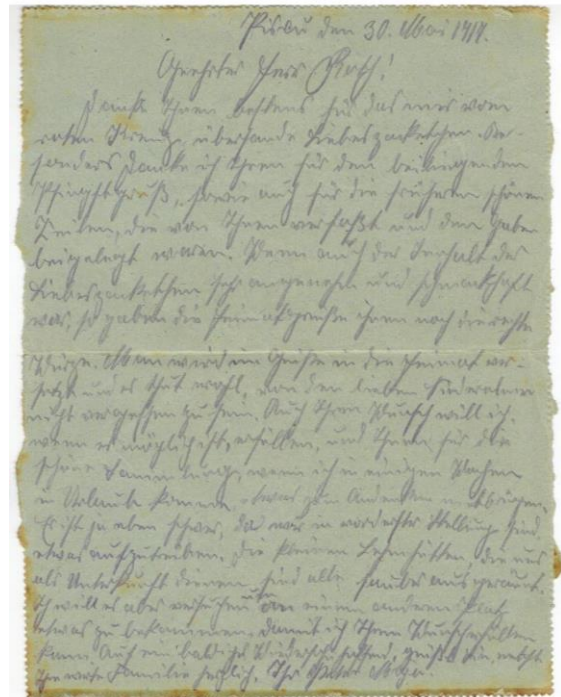 den 30. Mai 1917.
Geehrter Herr Roth!
Danke Ihnen bestens für das mir vom
roten Kreuz, übersande Liebespacketchen. Be-
sonders danke ich Ihnen für den beiliegenden
Pfingstgruß, sowie auch für die früheren schönen
Zeilen, die von Ihnen verfaßt und den Gaben
beigelegt waren. Wenn auch der Inhalt des
Liebespacketchen sehr angenehm und schmackhaft
war, so gaben die Heimatgrüße ihnen noch die rechte
Würze. Man wird im Geiste in die Heimat ver-
setzt und es thut wohl, von den lieben
nicht vergessen zu sein. Auch Ihren Wunsch will ich,
wenn es möglich ist, erfüllen, und Ihnen für die
schöne Sammlung, wenn ich in einigen Wochen
in Urlaub komme, etwas zum Andenken mitbringen.
Es ist ja eben schwer, da wir in vorderster Stellung sind,
etwas aufzutreiben. Die kleinen Lehmhütten, die uns
als Unterkunft dienen, sind alle sauber ausgeräumt.
Ich will es aber versuchen an einem anderen Platz
etwas zu bekommen, damit ich Ihren Wunsch erfüllen
kann. Auf ein baldiges Wiedersehen hoffend, grüßt Sie, nebst
Ihrer werten Familie herzlich, Ihr